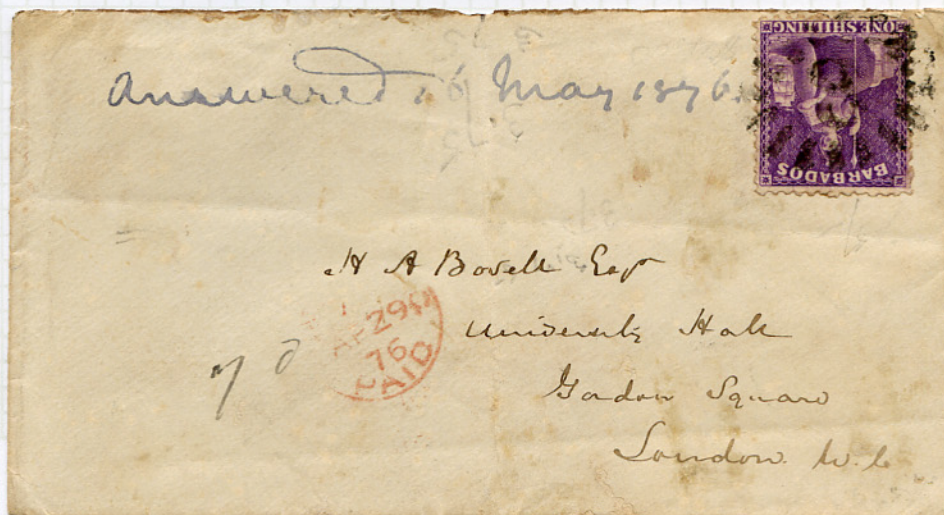 Answered, 6 May 1876.
ONE SHILLING
BARBADOS
H A Bovell Esqr
University Hall
Gordon Square
London. W.C
AP 29
76
PAID